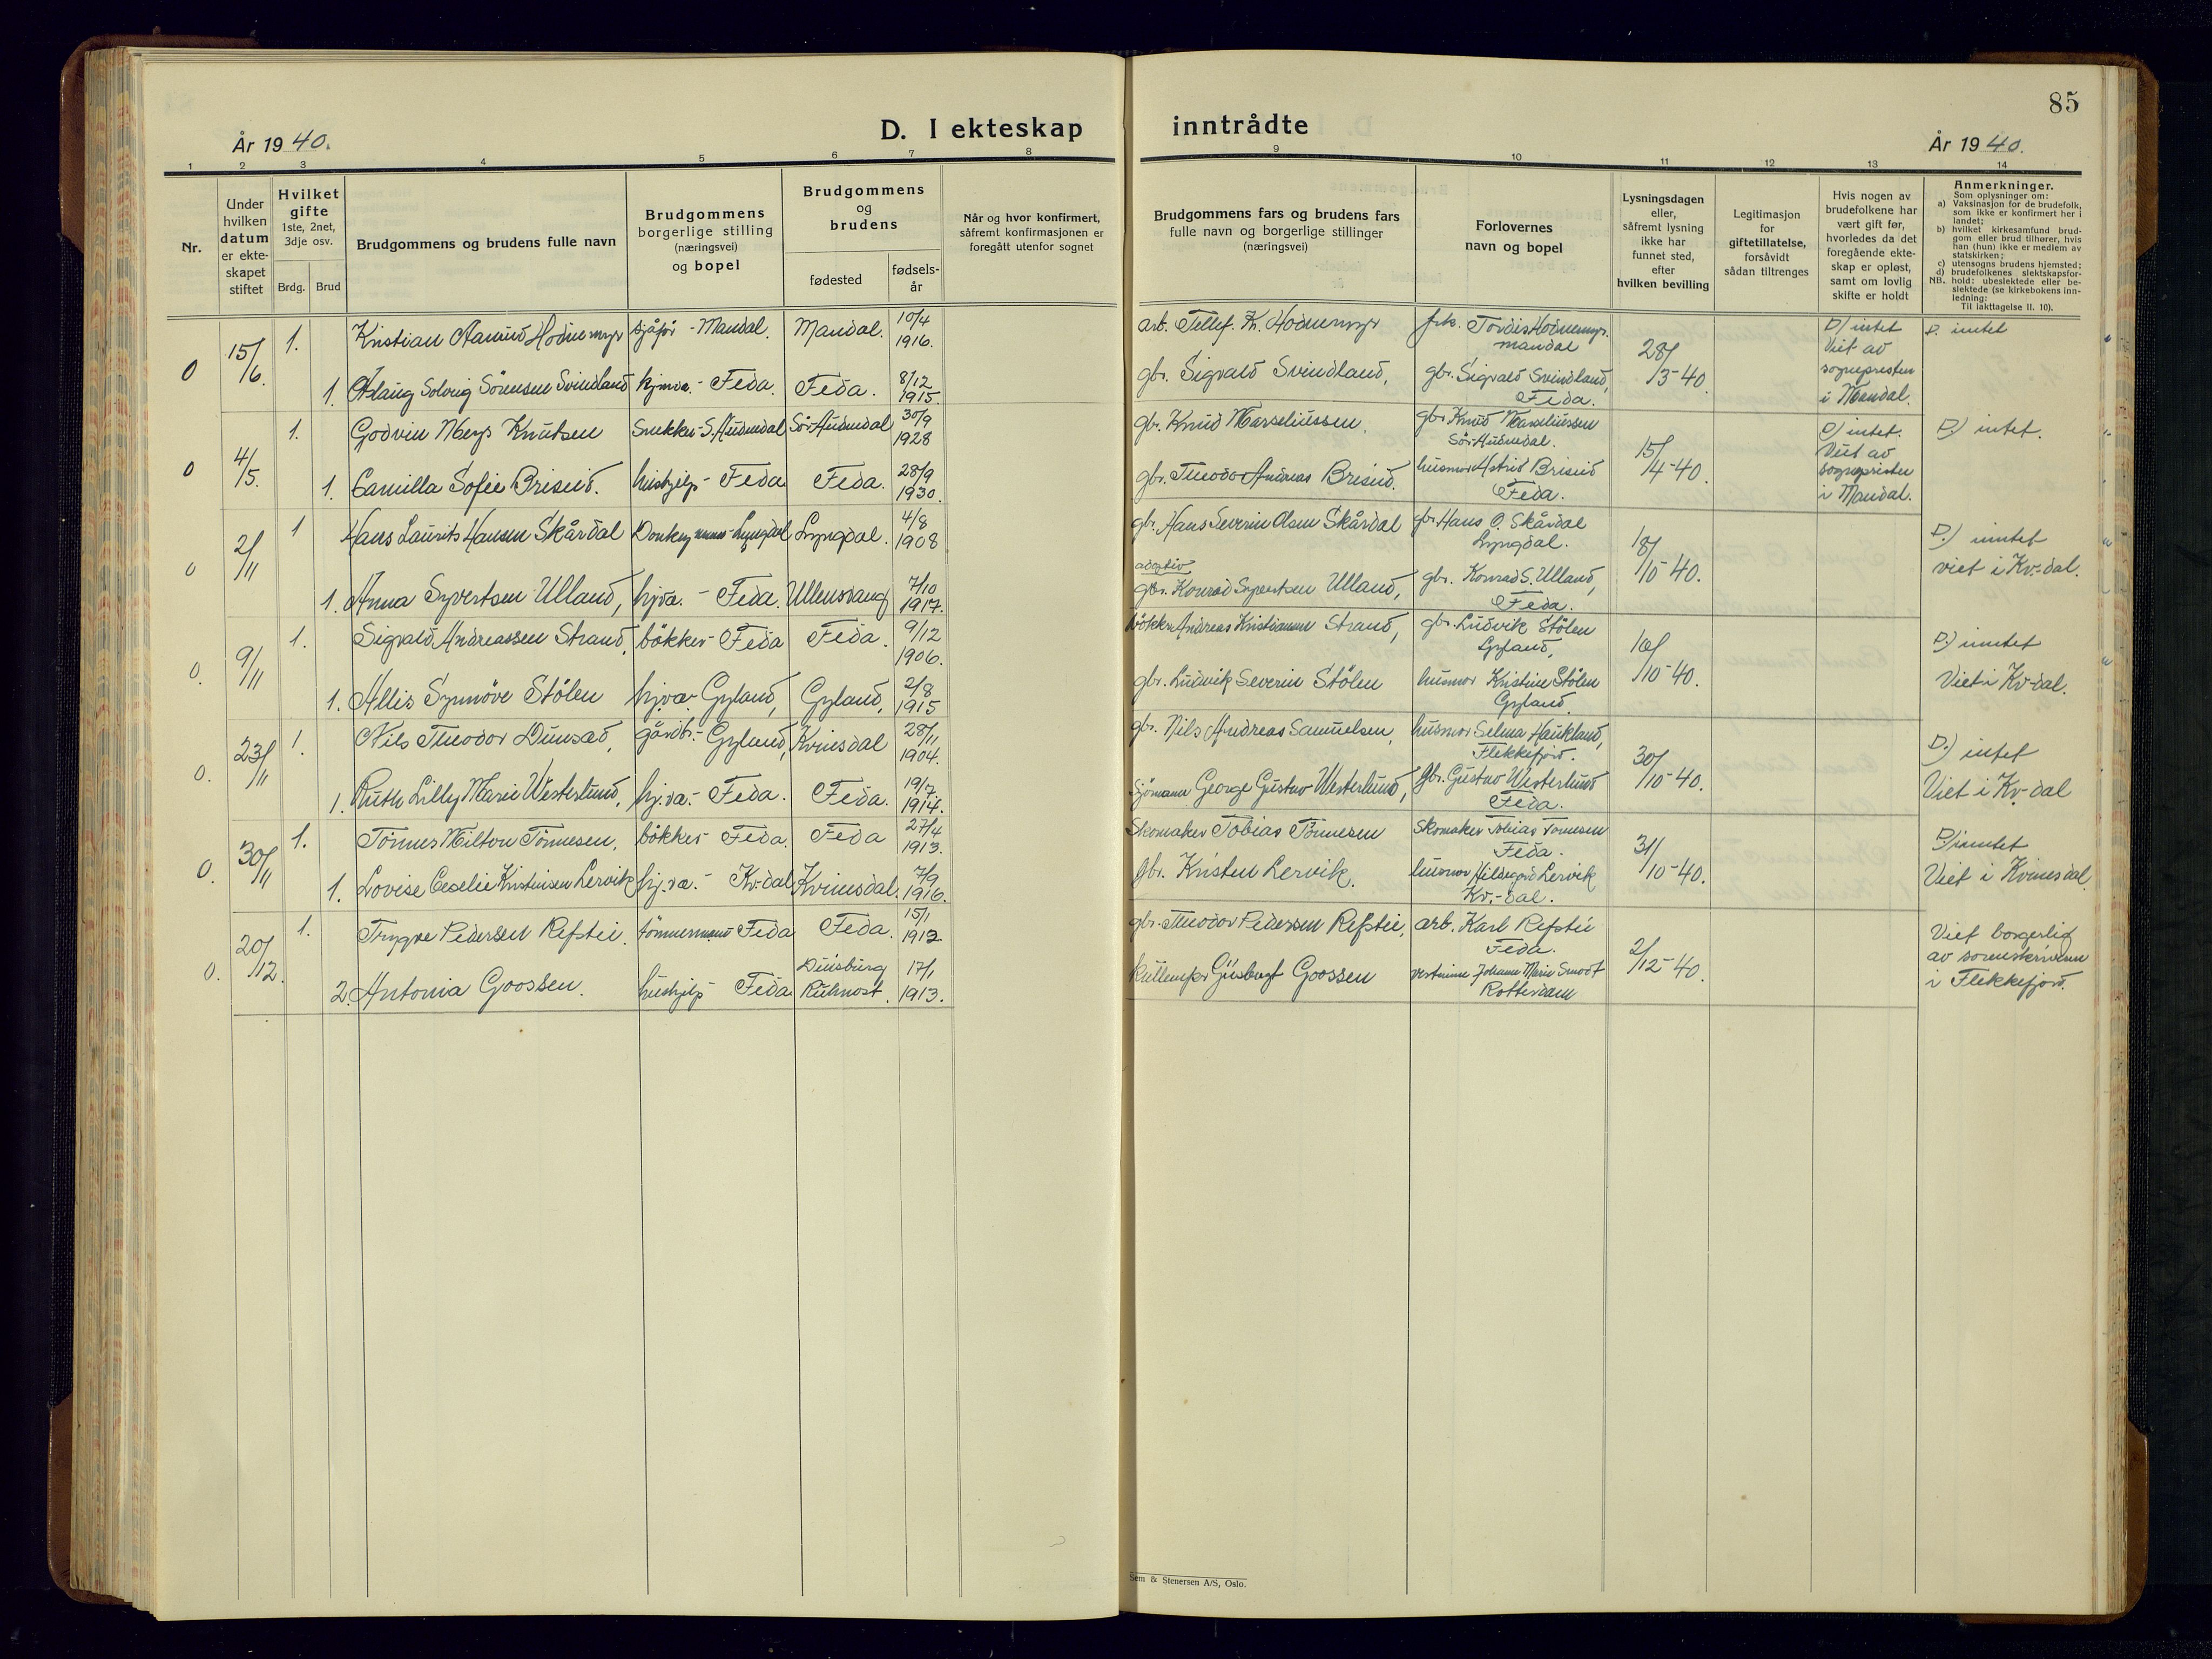 År 1940.
D. I ekteskap
1 2 3 4 5 6 7 8
Nr.
Under hvilken datum er ekte- skapet stiftet
Hvilket gifte 1ste, 2net, 3dje osv.
Brdg. Brud
Brudgommens og brudens fulle navn
Brudgommens borgerlige stilling (næringsvei) og bopel
Brudgommens og brudens
fødested
fødsels- år
Når og hvor konfirmert, såfremt konfirmasjonen er foregått utenfor sognet
0 15/6. 1. Kristian Aamund Hodnemyr sjåfør - Mandal. Mandal. 10/4 1916.
1. Aslaug Solveig Sörensen Svindland hjmv. - Feda. Feda. 8/12 1915.
0 4/5. 1. Godvin Knutsen Snekker - S. Audnedal Sör Audnedal 30/9 1928
1. Camilla Sofie Briseid. hushjelp - Feda Feda. 28/9 1930.
0 2/11 1 Hans Laurits Hansen Skårdal Donkeymann - Lyngdal Lyngdal. 4/8 1908
1. Anna Syvertsen Ulland, hjva. - Feda. Ullensvang 7/10 1917.
0. 9/11 1. Sigvald Andreassen Strand, bökker - Feda Feda. 9/12 1906.
1. Allis Synnöve Stölen hjva. Gyland, Gyland, 2/8 1915
0. 23/11 1. Nils Theodor Dunsæd, gårdbr. - Gyland, Kvinesdal 28/11 1904.
1. Ruth Lilly Marie Westerlund, hj.va. - Feda. Feda. 19/7. 1914.
0. 30/11 1. Tönnes Milton Tönnesen, bökker Feda. Feda 27/4 1913.
1. Lovise Cecelie Kristensen Lervik hj.va. - Kv.dal Kvinesdal. 7/9 1916.
0. 20/12. 1. Trygve Pedersen Refstie. tömmermann Feda Feda. 15/1 1912
2. Antonia Goossen. hushjelp Feda Duisburg Ruhrort. 17/1 1913.
85
inntrådte
År 1940.
9 10 11 12 13 14
Brudgommens fars og brudens fars fulle navn og borgerlige stillinger (næringsvei)
Forlovernes navn og bopel
Lysningsdagen eller, såfremt lysning ikke har funnet sted, efter hvilken bevilling
Legitimasjon for giftetillatelse, forsåvidt sådan tiltrenges
Hvis nogen av brudefolkene har vært gift før, hvorledes da det foregående ekte- skap er opløst, samt om lovlig skifte er holdt
Anmerkninger.
Som oplysninger om:
a) Vaksinasjon for de brudefolk, som ikke er konfirmert her i landet;
b) hvilket kirkesamfund brud- gom eller brud tilhører, hvis han (hun) ikke er medlem av statskirken;
c) utensogns brudens hjemsted;
d) brudefolkenes slektskapsfor- hold: ubeslektede eller be- slektede (se kirkebokens inn- ledning:
NB.
Til iakttagelse II. 10).
arb. Tellef. Kr. Hodnemyr frk. Tordis Hodnemyr. Mandal 28/3-40. D) intet Viet av sognepresten i Mandal. D. intet
gbr. Sigvald Svindland, gbr. Sigvald Svindland, Feda.
gbr. Knud Marseliussen. gbr. Knud Marseliussen Sör Audnedal. 15/4-40. D) intet. Viet av sognepresten i Mandal. D) intet.
gbr. Theodor Andreas Briseid. husmor Astrid Briseid Feda.
gbr. Hans Severin Olsen Skårdal gbr. Hans O. Skårdal Lyngdal. 18/10-40. D.) inntet viet i Kv.-dal.
adoptiv
gbr. Konrad Syvertsen Ulland, gbr. Konrad S. Ulland, Feda.
bökker Andreas Kristiansen Strand, gbr. Ludvik Stölen Gyland, 10/10-40. D.) inntet Viet i Kv-dal.
gbr. Ludvik Severin Stölen husmor Kristine Stölen Gyland.
gbr. Nils Andreas Samuelsen, husmor Selma Haukland, Flekkefjord. 30/10-40. D.) intet Viet i Kv-dal
Sjömann George Gustav Westerlund, gbr. Gustav Westerlund Feda.
Skomaker Tobias Tönnesen Skomaker Tobias Tönnesen Feda. 31/10-40. D) inntet Viet i Kvinesdal
gbr. Kristen Lervik. husmor Hildegard Lervik Kv.-dal.
gbr. Theodor Pedersen Refstie, arb. Karl Refstie Feda. 2/12-40. Viet borgerlig av sorenskriveren i Flekkefjord.
Gusbert Goossen vertinne Johanne Marie Smodt Rotterdam
Sem & Stenersen A/S, Oslo.